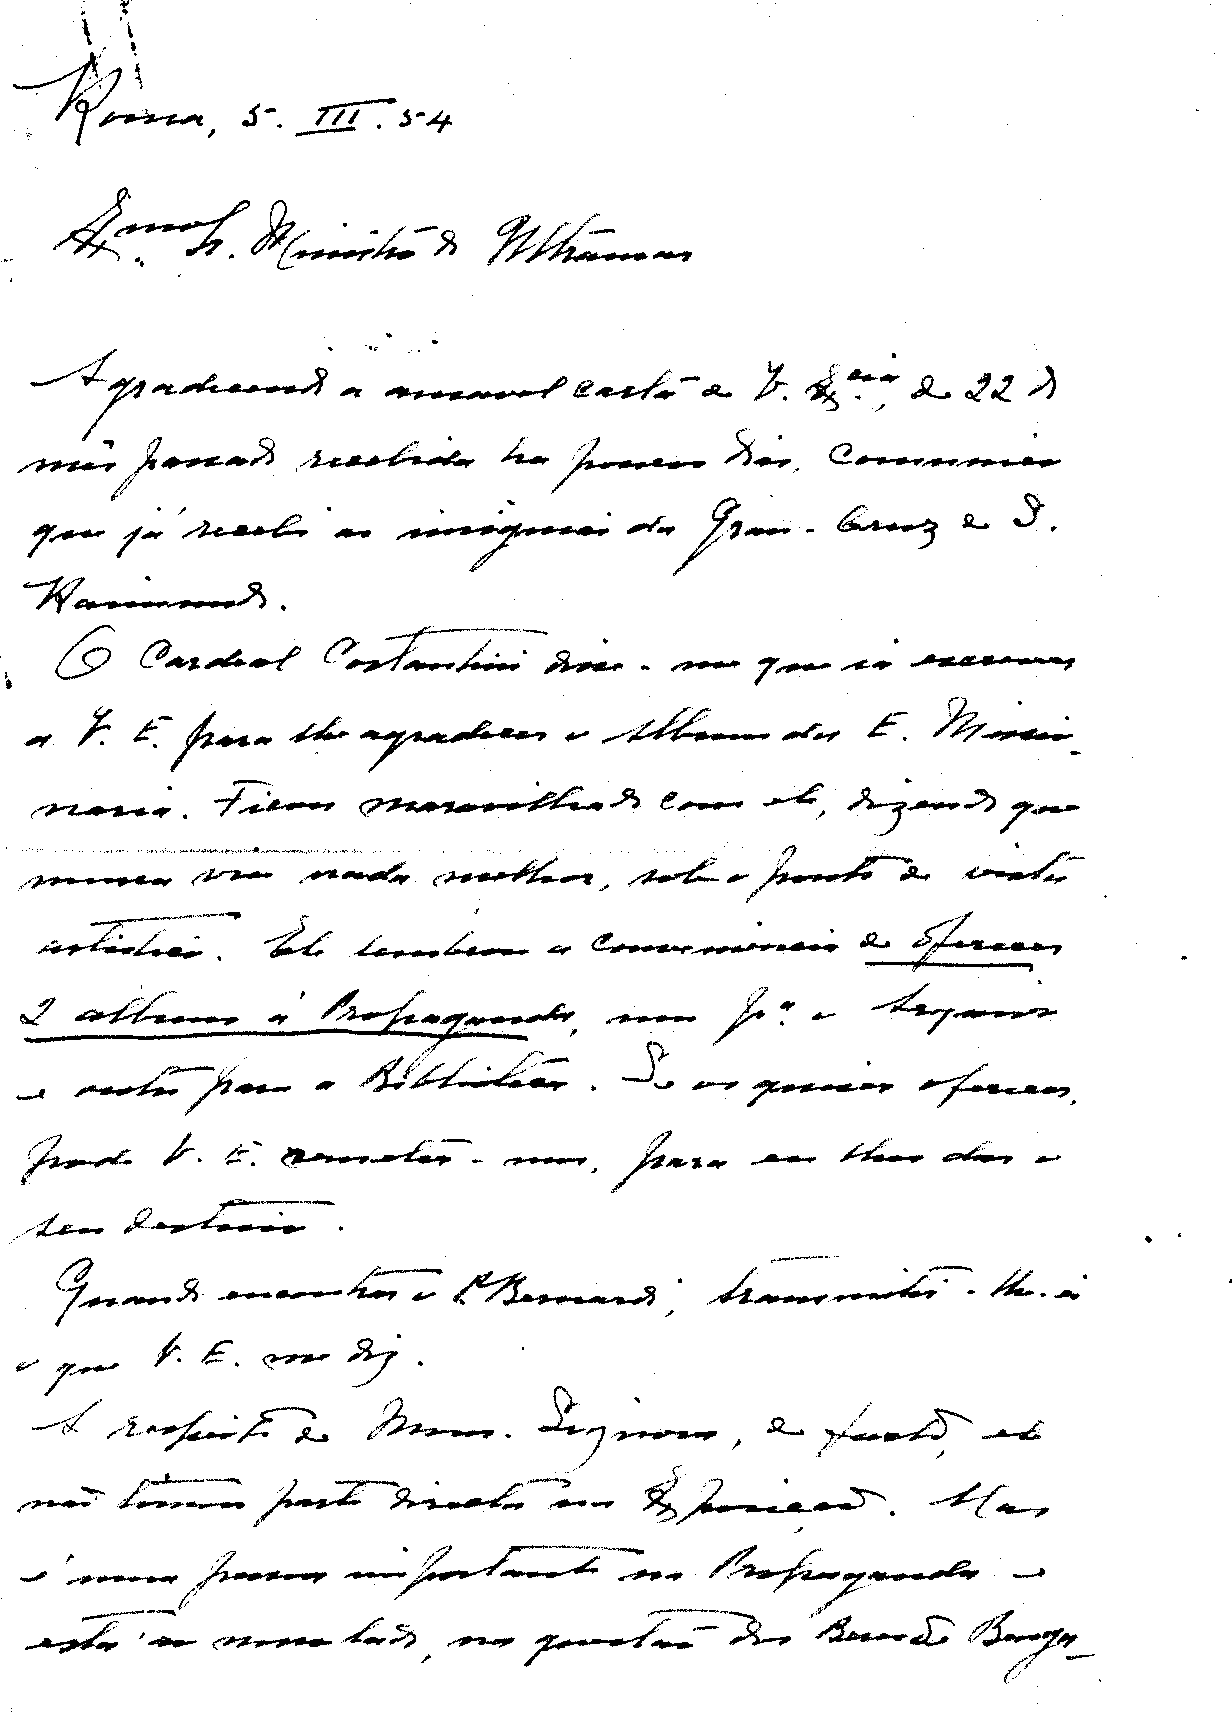 Roma, 5. III. 54
Exmo. Sr. Ministro do Ultramar
Agradecendo a amavel carta de V. Excia., de 22 do
mês passado recebida ha poucos dias, comunico
que já recebi as insignias da Gran-Cruz de S.
Raimundo.
O Cardeal Costantini disse-me que ia escrever
a V. E. para lhe agradecer o Album da E. Missio-
naria. Ficou maravilhado com ele, dizendo que
nunca viu nada melhor, sob o ponto de vista
artistico. Ele lembrou a conveniencia de oferecer
2 albuns á Propaganda, um pa. o Arquivo
e outro para a Biblioteca. Se os quiser oferecer,
pode V. E. remeter-mos, para eu lhes dar o
seu destino.
Quando encontrar o P. Bernardi, transmitir-lhe-ei
o que V. E. me diz.
A respeito de Mons. , de facto, ele
não tomou parte directa na Exposição. Mas
é uma pessoa importante na Propaganda e
está ao nosso lado, na questão dos